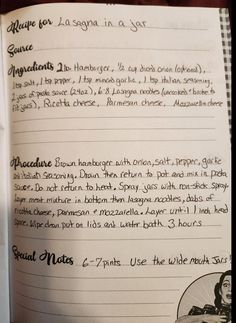 Recipe for Lasagna in a jar
Source
Ingredients 2 lb Hamburger, 1/2 cup diced onion (optional),
1 tsp salt, 1 tsp pepper, 1 tsp minced garlic, 1 tsp Italian seasoning,
2 jars of pasta sauce (24oz), 6-8 Lasagna noodles (uncooked + broke to
fit jars), Ricotta cheese, Parmesan cheese, Mozzarella cheese
Procedure Brown hamburger with onion, salt, pepper, garlic
and Italian Seasoning. Drain then return to pot and mix in pasta
Sauce. Do not return to heat. Spray jars with non-stick spray.
Layer meat mixture in bottom then lasagna noodles, dabs of
ricotta cheese, parmesan + mozzarella. Layer until 1 inch head
Space. Wipe down, put on lids and water bath 3 hours
Special Notes 6-7 pints Use the wide mouth Jars!